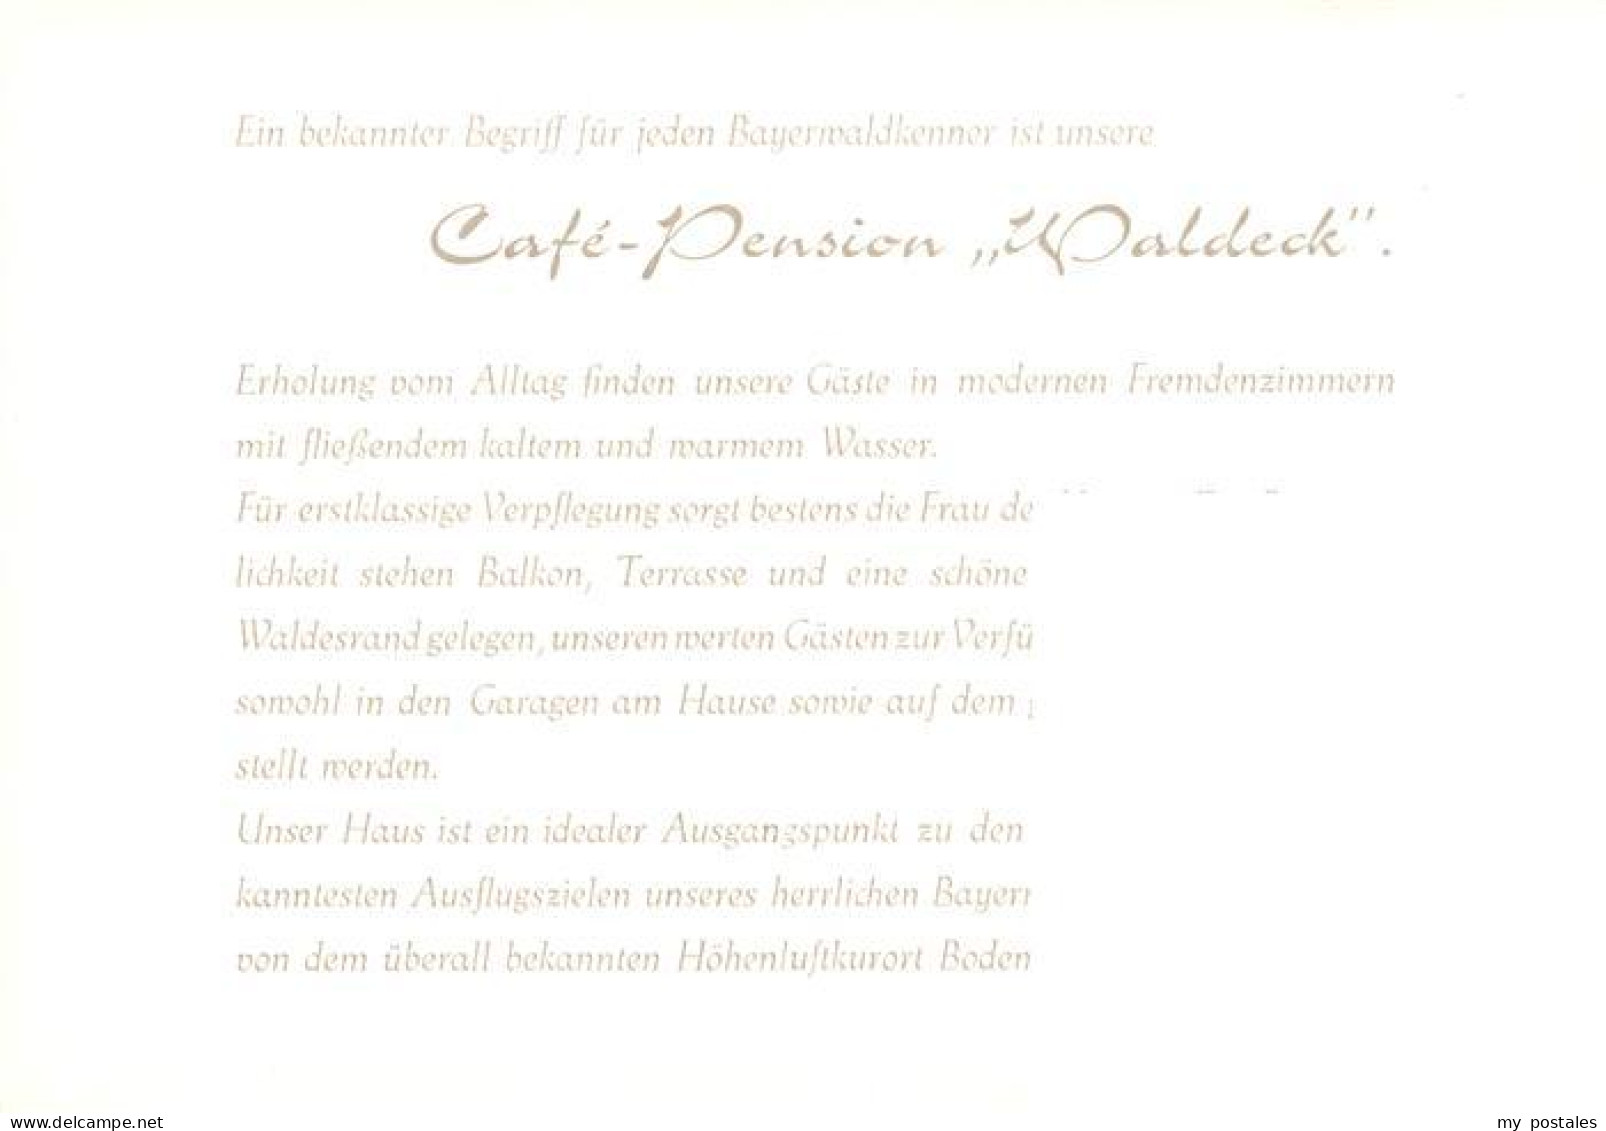 Ein bekannter Begriff für jeden Bayerwaldkenner ist unsere
Café-Pension „Waldeck".
Erholung vom Alltag finden unsere Gäste in modernen Fremdenzimmern
mit fließendem kaltem und warmem Wasser.
Für erstklassige Verpflegung sorgt bestens die Frau de
lichkeit stehen Balkon, Terrasse und eine schöne
Waldesrand gelegen, unseren werten Gästen zur Verfü
sowohl in den Garagen am Hause sowie auf dem
stellt werden.
Unser Haus ist ein idealer Ausgangspunkt zu den
kanntesten Ausflugszielen unseres herrlichen Bayer
von dem überall bekannten Höhenluftkurort Boden
www.delcampe.net
my_postales